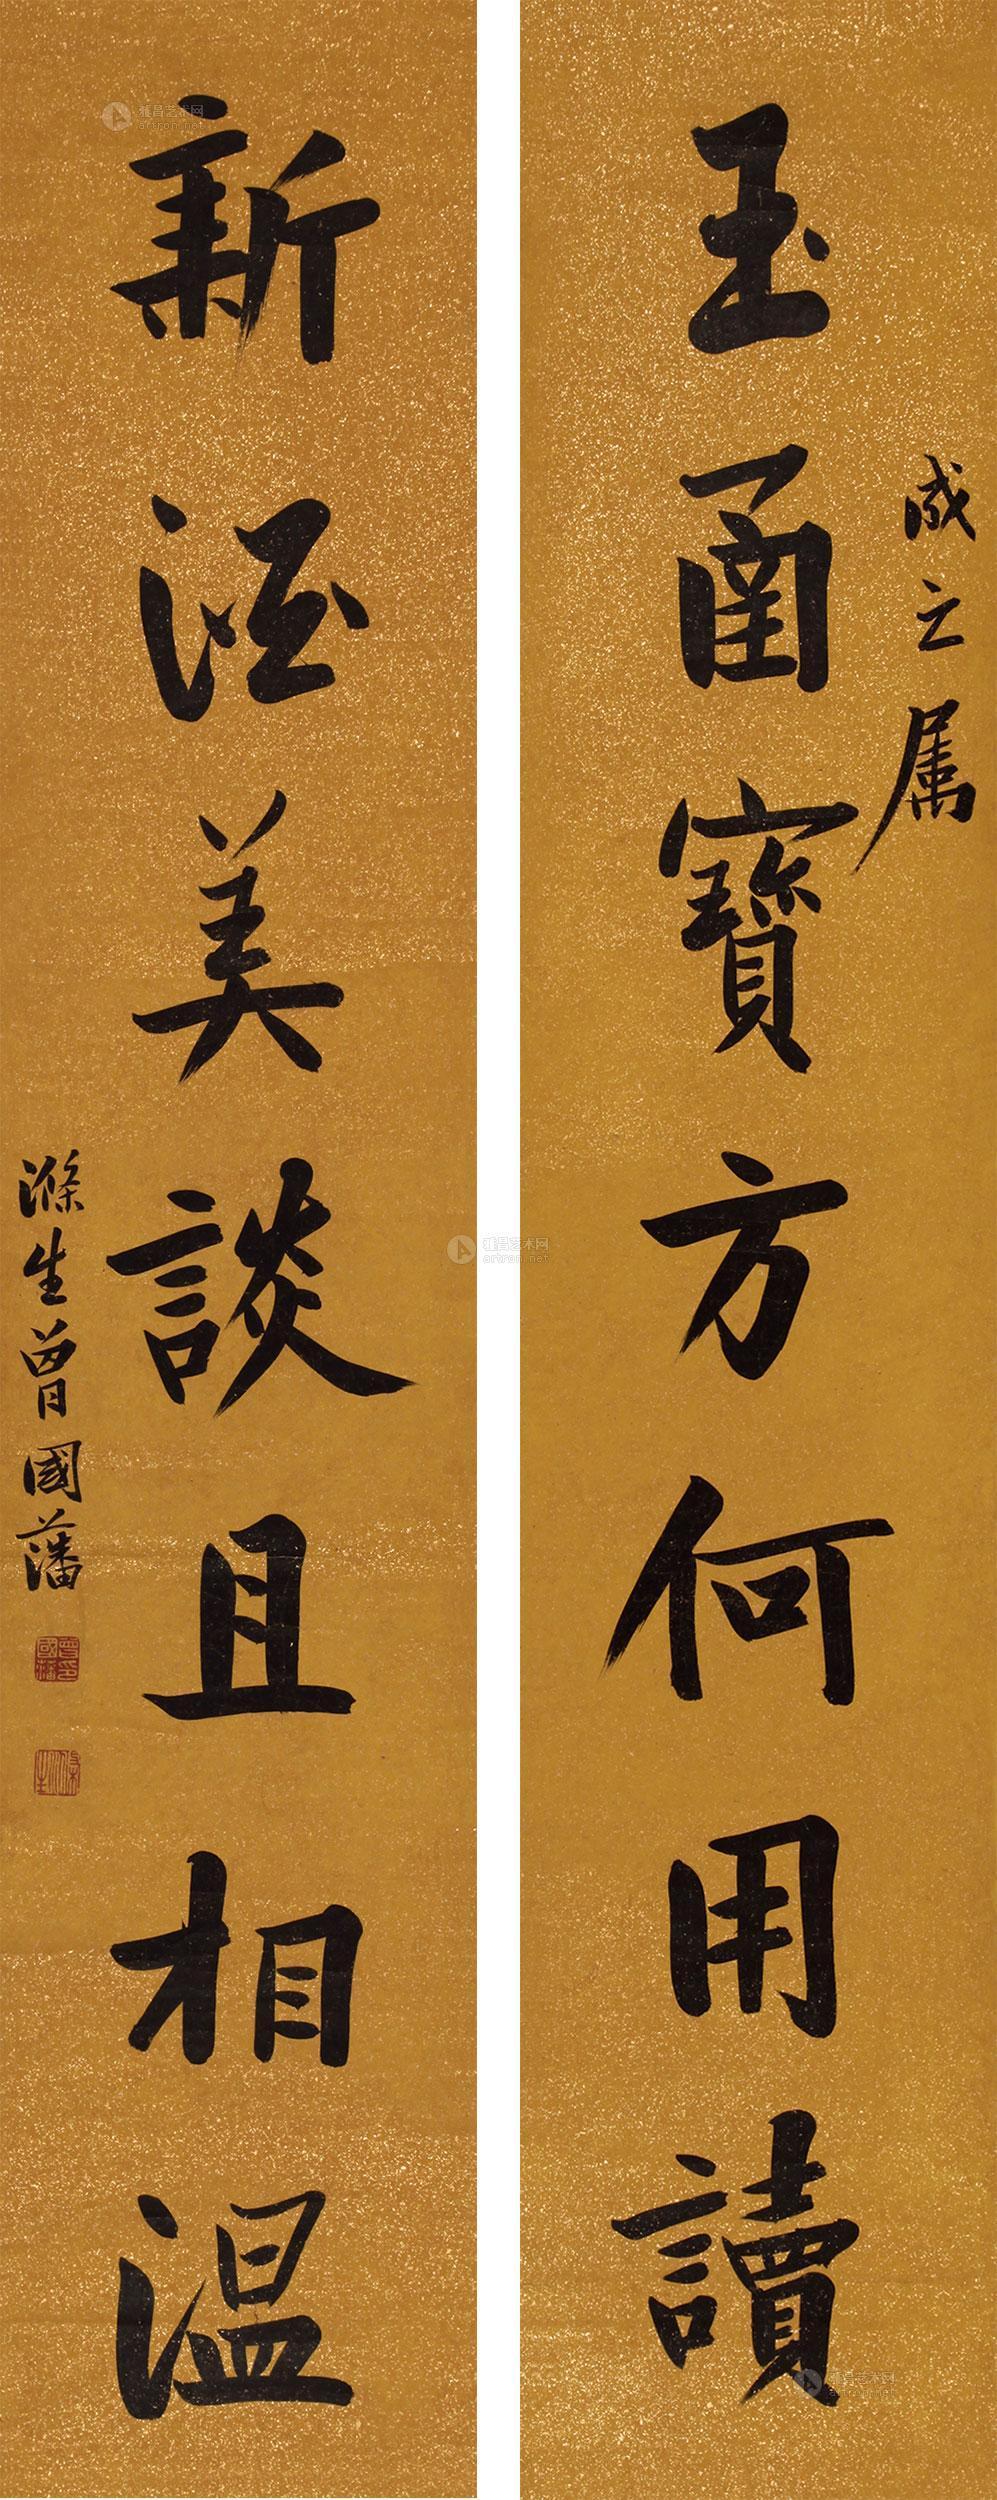 成之属
玉函寶方何用讀
新美談且相温
滌生曾國藩
曾印國藩
滌生
雅昌艺术网
artron.net
雅昌艺术网
artron.net
雅昌艺术网
artron.net